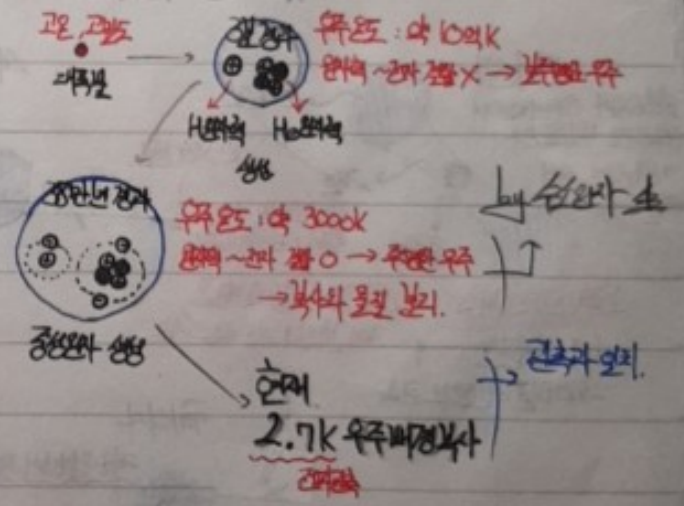 고온, 고밀도
대폭발
3분 경과
우주온도 : 약 10억K
원자핵~전자 결합 X → 불투명한 우주
H원자핵 He원자핵
생성
38만년 경과
우주온도 : 약 3000K
원자핵~전자 결합 O → 투명한 우주
→ 복사와 물질 분리.
중성원자 생성
현재
2.7K 우주배경복사
관측과 일치.